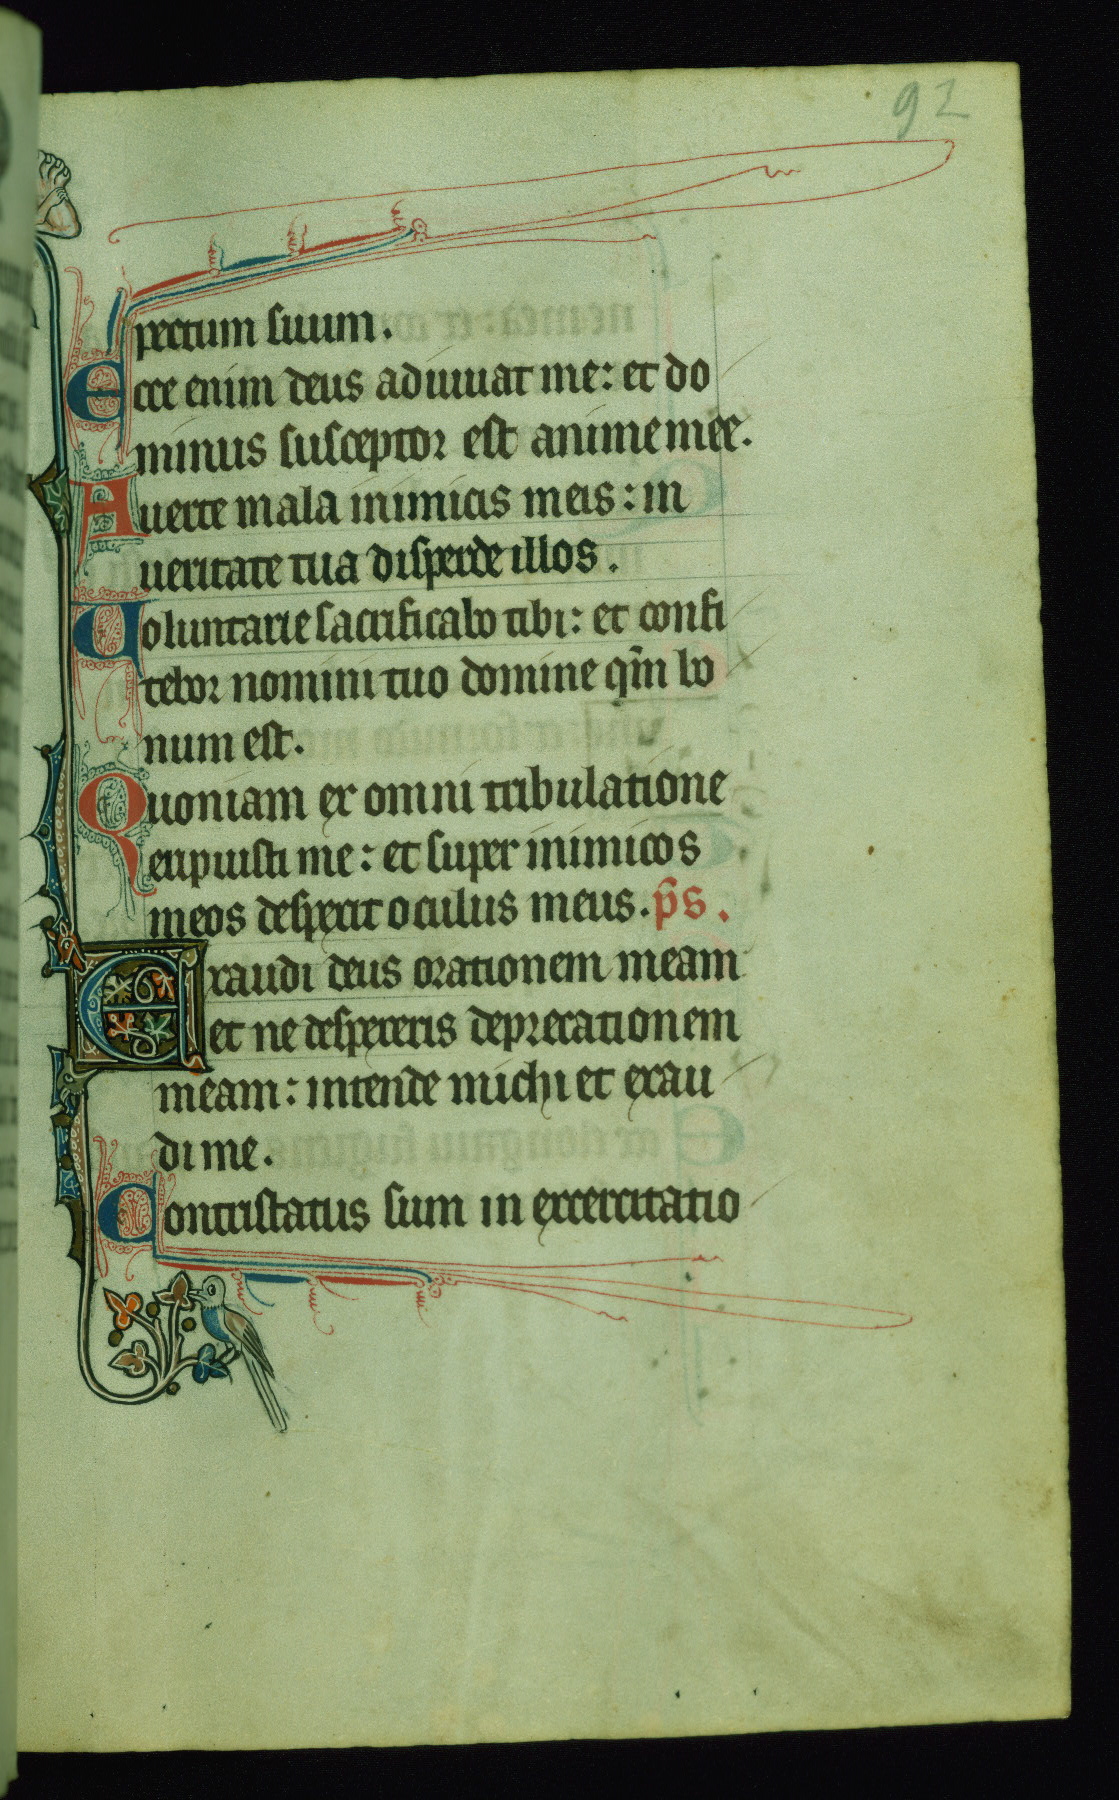 92
pectum suum.
Ecce enim deus adiuuat me: et do
minus susceptor est anime mee.
Auerte mala inimicis meis: in
ueritate tua disperde illos.
Uoluntarie sacrificabo tibi: et confi
tebor nomini tuo domine qm̄ bo
num est.
Quoniam ex omni tribulatione
eripuisti me: et super inimicos
meos despexit oculus meus. p̄s.
Exaudi deus orationem meam
et ne despexeris deprecationem
meam: intende michi et exau
di me.
Contristatus sum in excercitatio